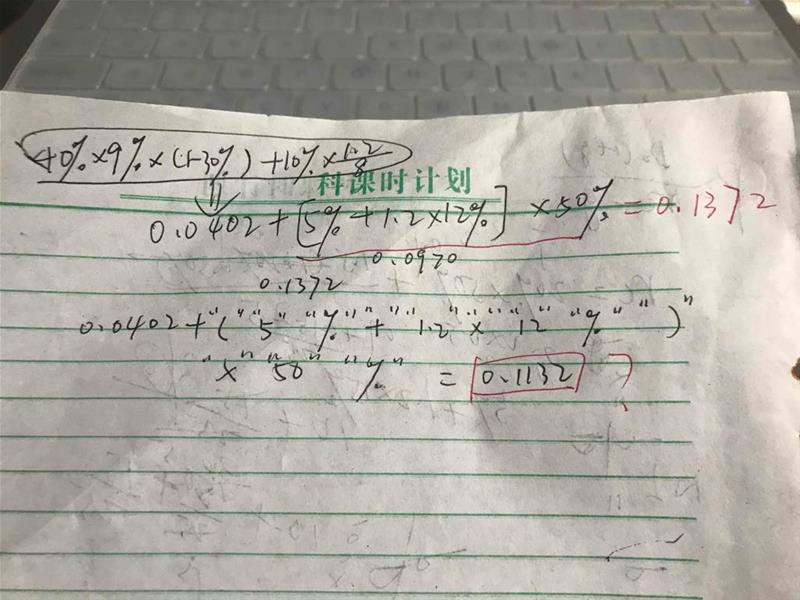 40%×9%×(1-30%)+10%×1.2/8
科课时计划
0.0402+[5%+1.2×12%]×50%=0.1372
0.0970
0.1372
0.0402+"("5""%"+"1.2"×"12"%"")"
"×""50""%"=0.1132